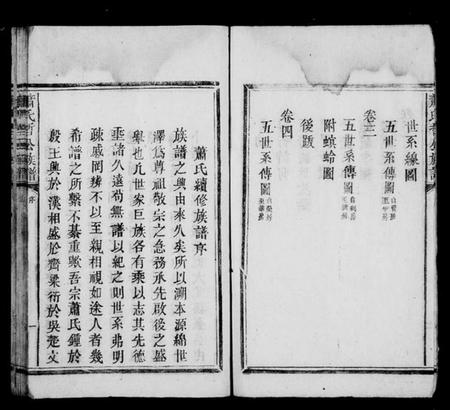 世系線圖
五世系傳圖
卷三
五世系傳圖
附螟蛉圖
後跋
卷四
五世系傳圖
蕭氏續修族譜序
族譜之興由來久矣所以溯本源綿世
澤爲尊祖敬宗之急務承先啟後之盛
舉也凡世家巨族各有乘以志其先德
垂諸久遠苟無譜以紀之則世系弗明
疎戚罔辨不以至親相視如途人者幾
希譜之所繫不綦重歟吾宗蕭氏鍾於
殷王興於漢相盛於齊梁衍於吳楚文
序
一